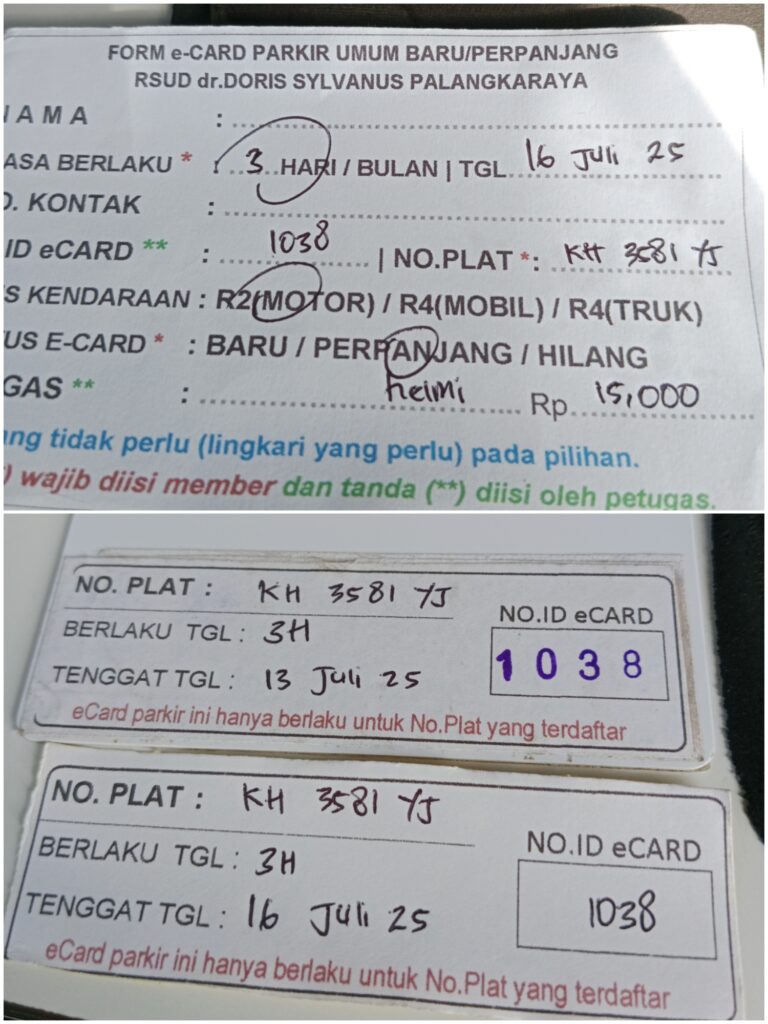 FORM e-CARD PARKIR UMUM BARU/PERPANJANG
RSUD dr.DORIS SYLVANUS PALANGKARAYA
NAMA :
ASA BERLAKU * : 3 HARI / BULAN | TGL. 16 Juli 25
O. KONTAK :
ID eCARD ** : 1038 | NO.PLAT *: KH 3581 YJ
S KENDARAAN : R2(MOTOR) / R4(MOBIL) / R4(TRUK)
US E-CARD * : BARU / PERPANJANG / HILANG
GAS ** : helmi Rp. 15,000
ng tidak perlu (lingkari yang perlu) pada pilihan.
) wajib diisi member dan tanda (**) diisi oleh petugas.
NO. PLAT : KH 3581 YJ
NO.ID eCARD
BERLAKU TGL : 3H
1038
TENGGAT TGL : 13 Juli 25
eCard parkir ini hanya berlaku untuk No.Plat yang terdaftar
NO. PLAT : KH 3581 YJ
NO.ID eCARD
BERLAKU TGL : 3H
1038
TENGGAT TGL : 16 Juli 25
eCard parkir ini hanya berlaku untuk No.Plat yang terdaftar